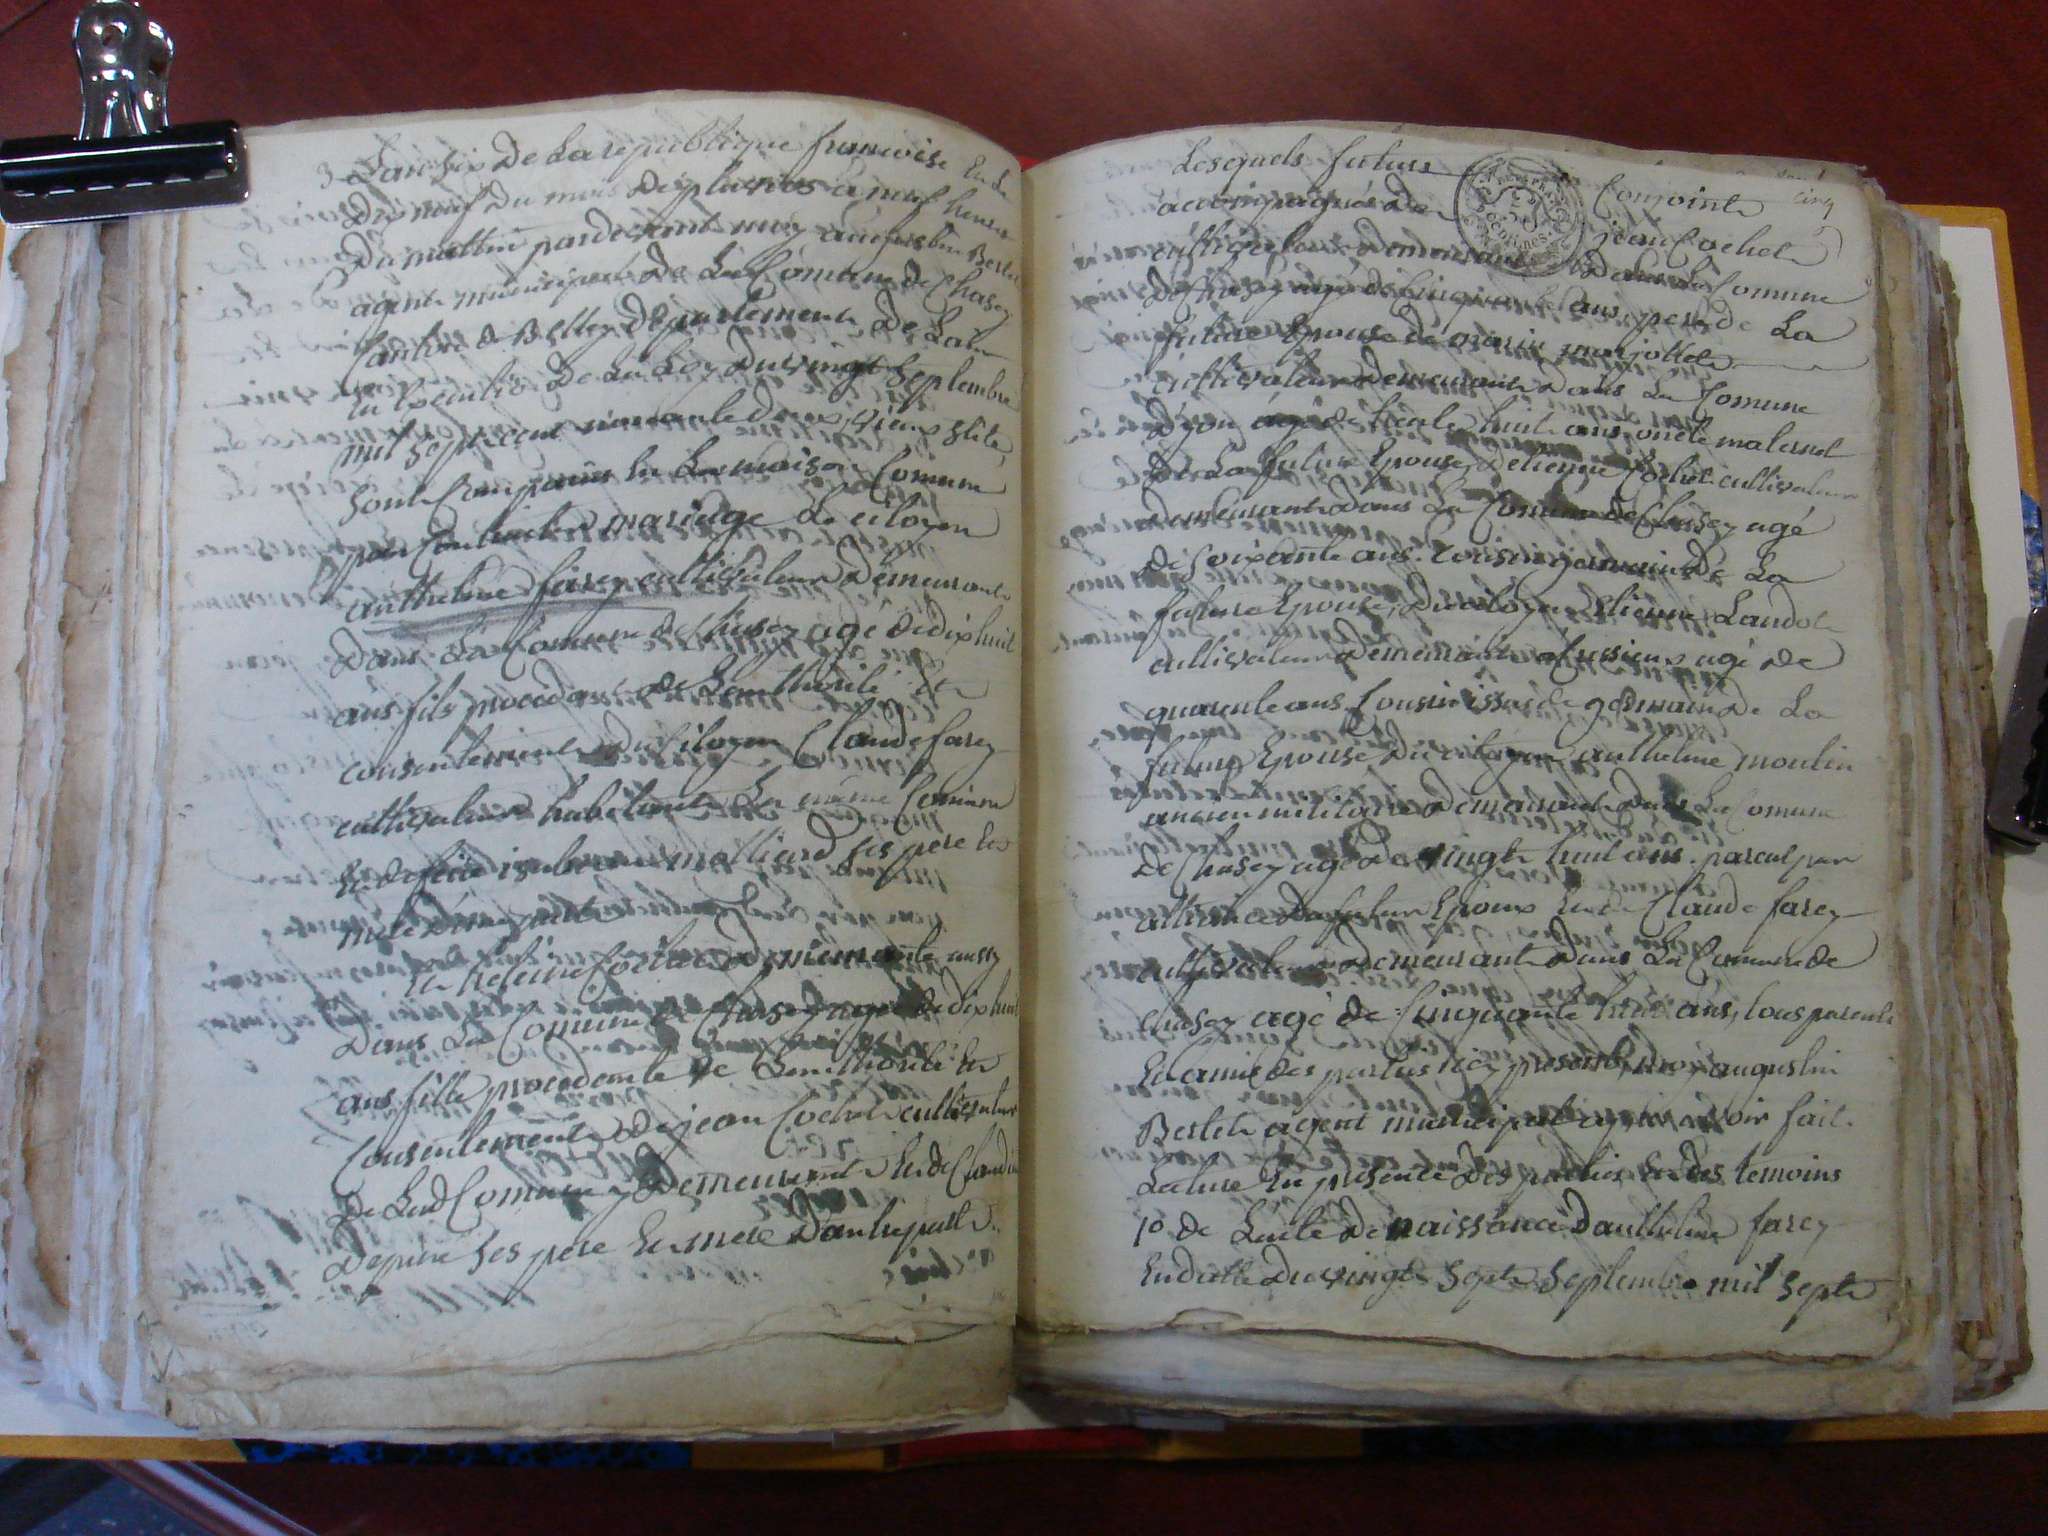 3 L'an six De La republique francoise Et Le
Dix neuf Du mois De pluvios a neuf heures
Du mattin pardevant moy augustin Bertet
agent municipal De La Comune de Chasey
Canton de Belley Departement De Lain
En Execution De La Loy Du vingt Septembre
mil Sept cent nonante Deux, vieux Stile,
Sont Comparus En La maison Comune
pour Contracter mariage Le citoyen
anthelme farcy cultivateur Demeurant
Dans La Comune de Chasey agé de dix huit
ans fils procedant de Lauthorité Et
consentement Du Citoyen Claude farcy
cultivateur habitant La même Comune
Et de feüe molliard Ses pere Et
mere D'une part
Et heleine Cochet Demeurante aussy
Dans La Comune de Chasey agée de dix huit
ans fille procedente de Lauthorité Et
Consentement De jean Cochet cultivateur
De Lad Comune y Demeurant Et de Claudine
Depine Ses pere Et mere D'autre part
Lesquels future Conjoints cinq
acompagnés De jean Cochet
cultivateur Demeurant Dans La Comune
De Chasey agé de Cinquante ans, pere de La
future Epouse de marjollet
cultivateur Demeurant Dans La Comune
agé de trente huit ans oncle maternel
De La future Epouse, D'etienne Cochet cultivateur
Demeurant Dans La Comune De Chasey agé
De Soixante ans. Cousin germain De La
future Epouse, Du citoyen Etienne Landot
cultivateur Demeurant a agé de
quarente ans Cousin issus de germain De La
future Epouse Du citoyen anthelme moulin
ancien militaire Demeurant Dans La Comune
De Chasey agé De vingt huit ans. parent par
alliance Du future Epoux Et de Claude farcy
cultivateur Demeurant Dans La Comune de
Chasey agé de Cinquante huit ans, tous parents
Et amis des parties icy presents, moy augustin
Bertet agent municipal apres avoir fait
Lecture En presence Des parties Et des temoins
1o de Lacte De naissance D'anthelme farcy
En datte Du vingt Sept Septembre mil Sept